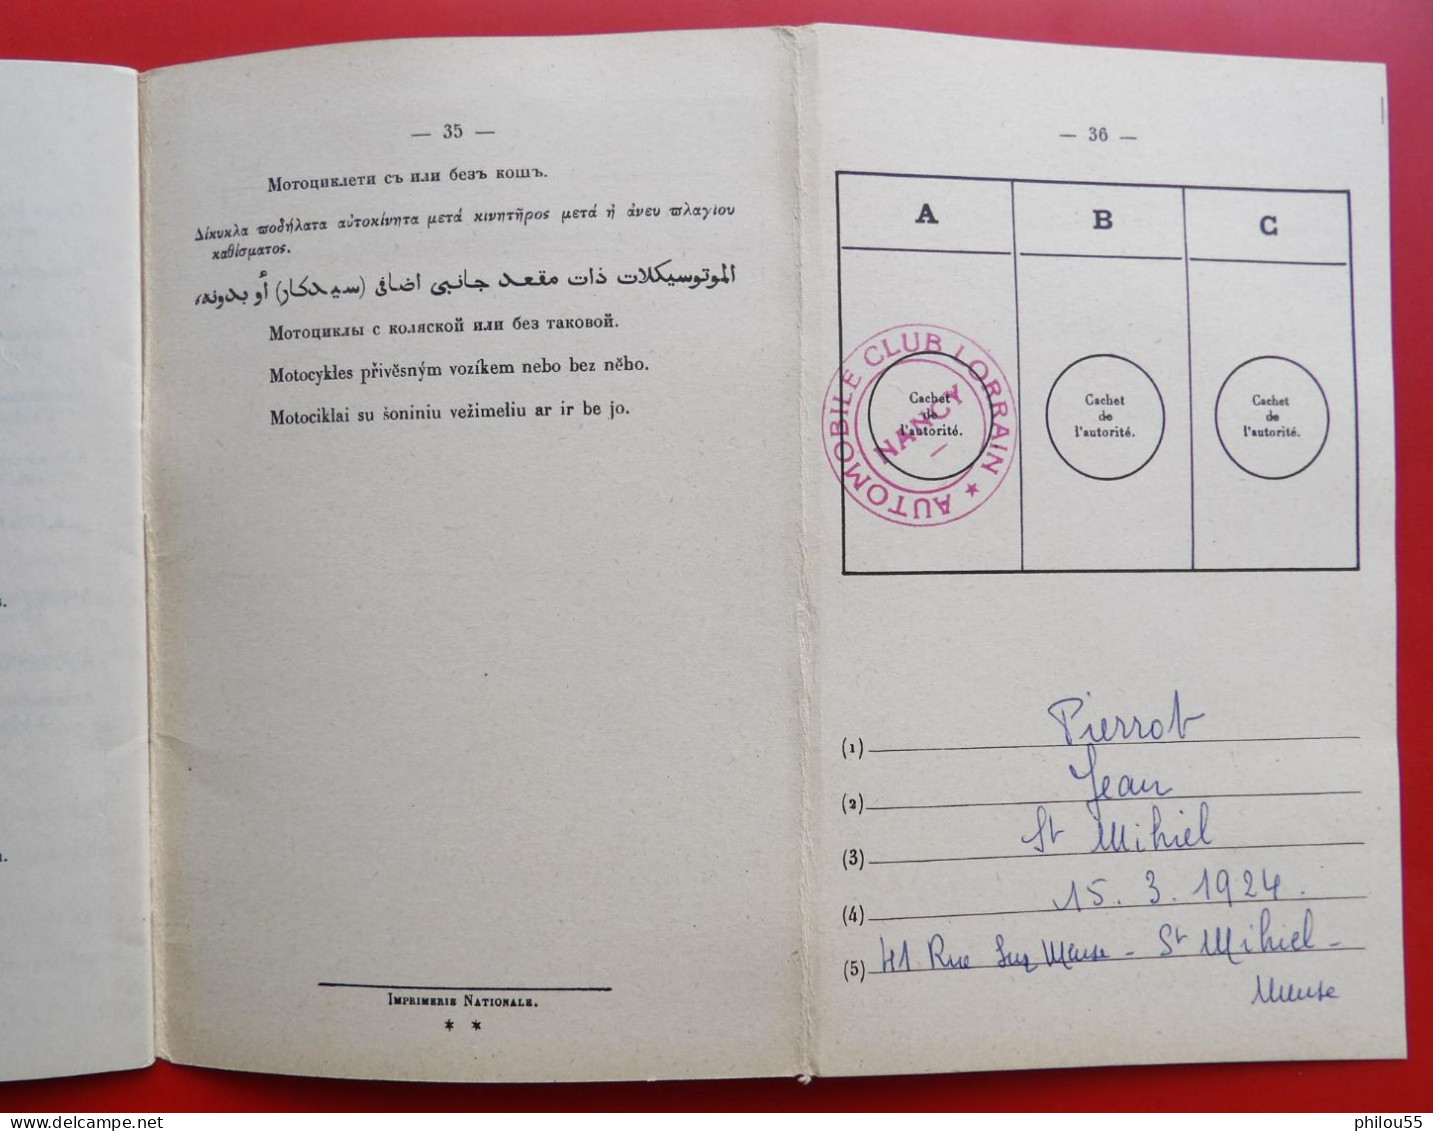 — 35 —
Мотоциклети съ или безъ кошъ.
Δίκυκλα ποδήλατα αὐτοκίνητα μετά κινητῆρος μετά ἤ ἄνευ πλαγίου
καθίσματος.
الموتوسيكلات ذات مقعد جانبى اضافى (سيدكار) أو بدونه،
Мотоциклы с коляской или без таковой.
Motocykles přivěsným vozíkem nebo bez něho.
Motociklai su šoniniu vežimeliu ar ir be jo.
IMPRIMERIE NATIONALE.
* *
— 36 —
A B C
AUTOMOBILE CLUB LORRAIN ★
NANCY
Cachet
de
l'autorité.
Cachet
de
l'autorité.
Cachet
de
l'autorité.
(1) Pierrot
(2) Jean
(3) St Mihiel
(4) 15. 3. 1924.
(5) 41 Rue Sur Meuse - St Mihiel -
Meuse
www.delcampe.net
philou55